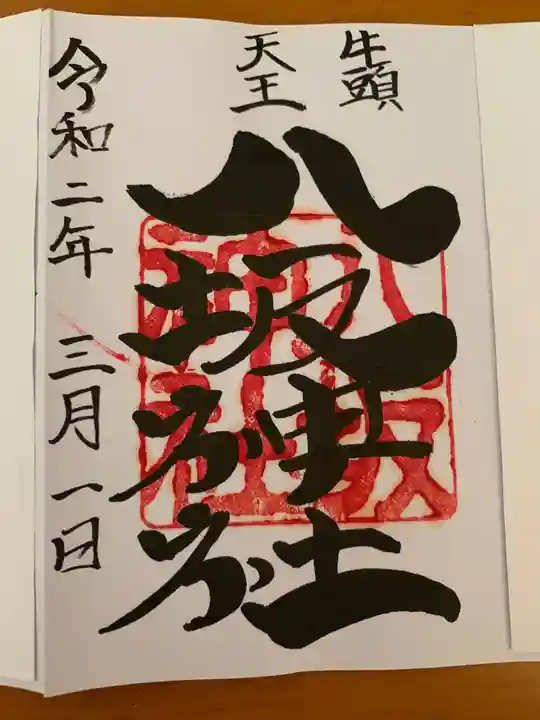 牛頭
天王
八坂神社
令和二年 三月一日
八坂神社